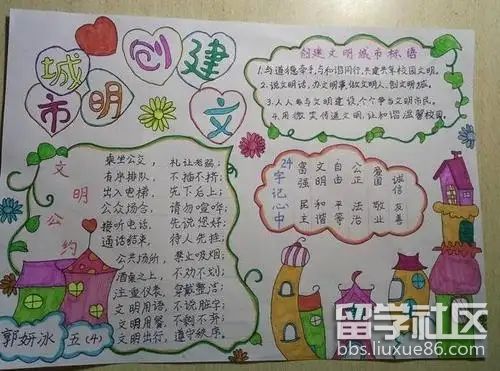 创建
城
市明 文
创建文明城市标语
1.与道德牵手,与和谐同行,共建共享校园文明。
2.说文明话,办文明事,做文明人,创文明城。
3.人人参与文明建设,个个争当文明市民。
4.用微笑文明,让和谐温馨校园。
文明公约
乘坐公交,礼让老弱;
有序排队,不插不挤;
出入电梯,先下后上;
公众场合,请勿喧哗;
接听电话,先说您好;
通话结束,待人先挂;
公共场所,禁止吸烟;
酒桌之上,不劝不划;
注重仪表,穿戴整洁;
文明用语,不说脏字;
文明用餐,不剩不弃;
文明出行,遵守秩序。
24字记心中
富强 文明 自由 公正 爱国 诚信
民主 和谐 平等 法治 敬业 友善
郭妍冰 五(4)
留学社区
bbs.liuxue86.com